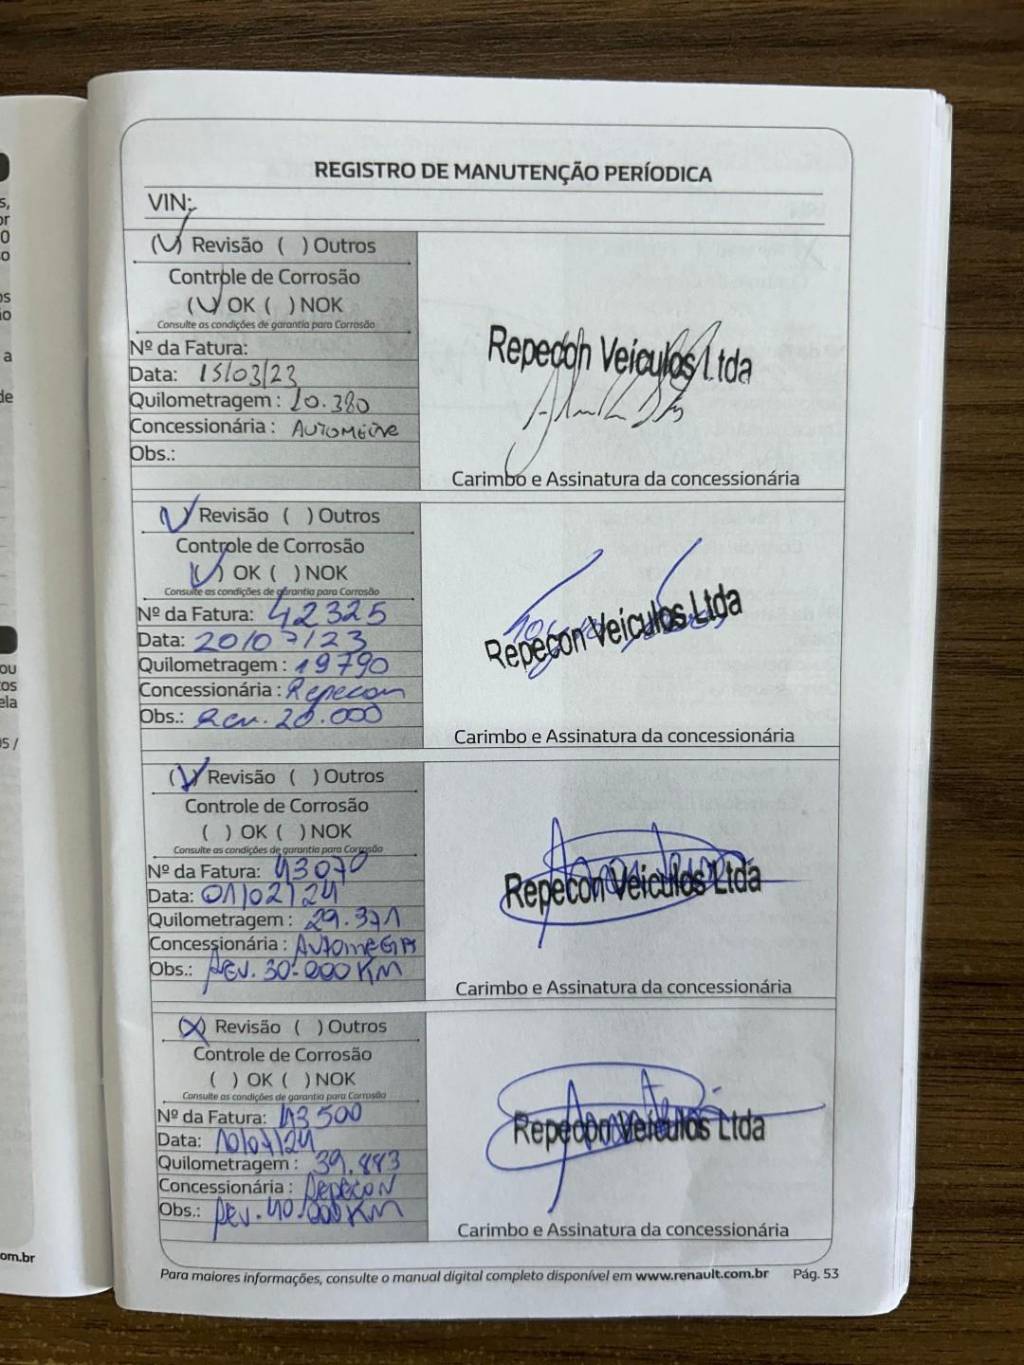 REGISTRO DE MANUTENÇÃO PERÍODICA
VIN:
(✓) Revisão ( ) Outros
Controle de Corrosão
(✓) OK ( ) NOK
Consulte as condições de garantia para Corrosão
Nº da Fatura:
Data: 15/03/23
Quilometragem : 10.380
Concessionária :
Obs.:
Repecon Veículos Ltda
Carimbo e Assinatura da concessionária
(✓) Revisão ( ) Outros
Controle de Corrosão
(✓) OK ( ) NOK
Consulte as condições de garantia para Corrosão
Nº da Fatura: 42325
Data: 20/07/23
Quilometragem : 19790
Concessionária : Repecon
Obs.: Rev. 20.000
Repecon Veículos Ltda
Carimbo e Assinatura da concessionária
(✓) Revisão ( ) Outros
Controle de Corrosão
( ) OK ( ) NOK
Consulte as condições de garantia para Corrosão
Nº da Fatura: 43070
Data: 01/02/24
Quilometragem : 29.371
Concessionária : AUTOMEGA
Obs.: REV. 30.000 KM
Repecon Veículos Ltda
Carimbo e Assinatura da concessionária
(X) Revisão ( ) Outros
Controle de Corrosão
( ) OK ( ) NOK
Consulte as condições de garantia para Corrosão
Nº da Fatura: 43500
Data: 10/07/24
Quilometragem : 39.883
Concessionária : REPECON
Obs.: REV. 40.000 KM
Repecon Veículos Ltda
Carimbo e Assinatura da concessionária
Para maiores informações, consulte o manual digital completo disponível em www.renault.com.br Pág. 53
om.br